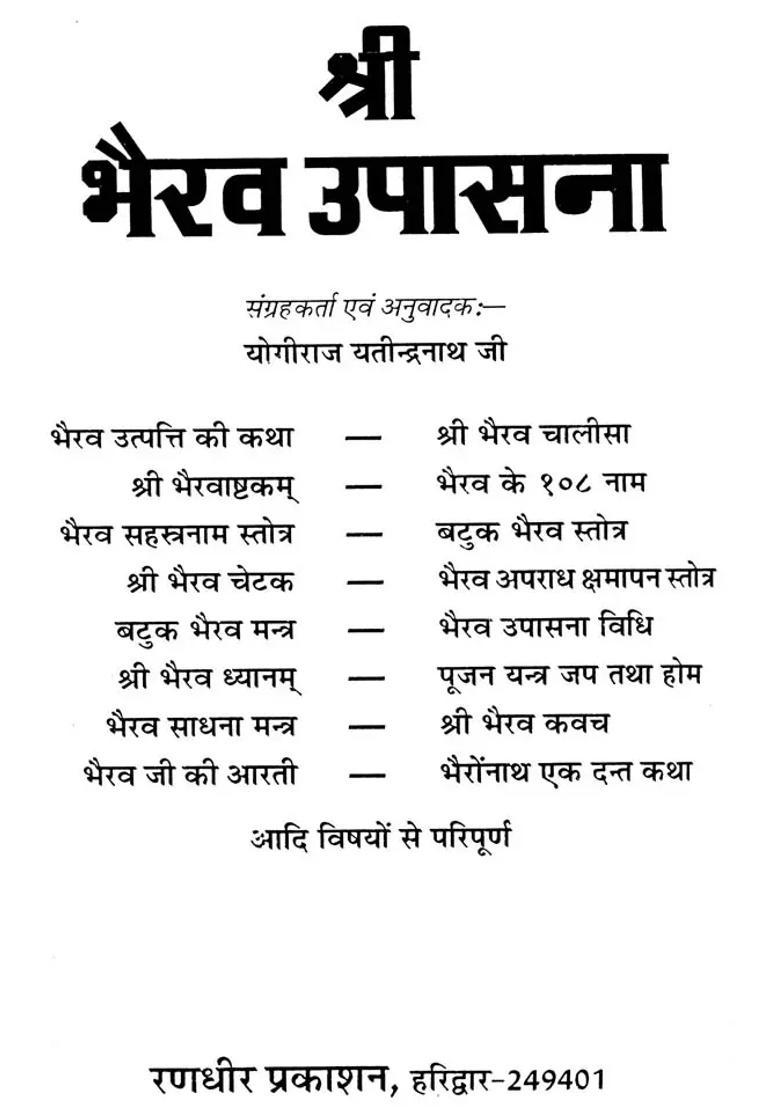 श्री
भैरव उपासना
संग्रहकर्ता एवं अनुवादक:—
योगीराज यतीन्द्रनाथ जी
भैरव उत्पत्ति की कथा — श्री भैरव चालीसा
श्री भैरवाष्टकम् — भैरव के १०८ नाम
भैरव सहस्त्रनाम स्तोत्र — बटुक भैरव स्तोत्र
श्री भैरव चेटक — भैरव अपराध क्षमापन स्तोत्र
बटुक भैरव मन्त्र — भैरव उपासना विधि
श्री भैरव ध्यानम् — पूजन यन्त्र जप तथा होम
भैरव साधना मन्त्र — श्री भैरव कवच
भैरव जी की आरती — भैरोंनाथ एक दन्त कथा
आदि विषयों से परिपूर्ण
रणधीर प्रकाशन, हरिद्वार-249401